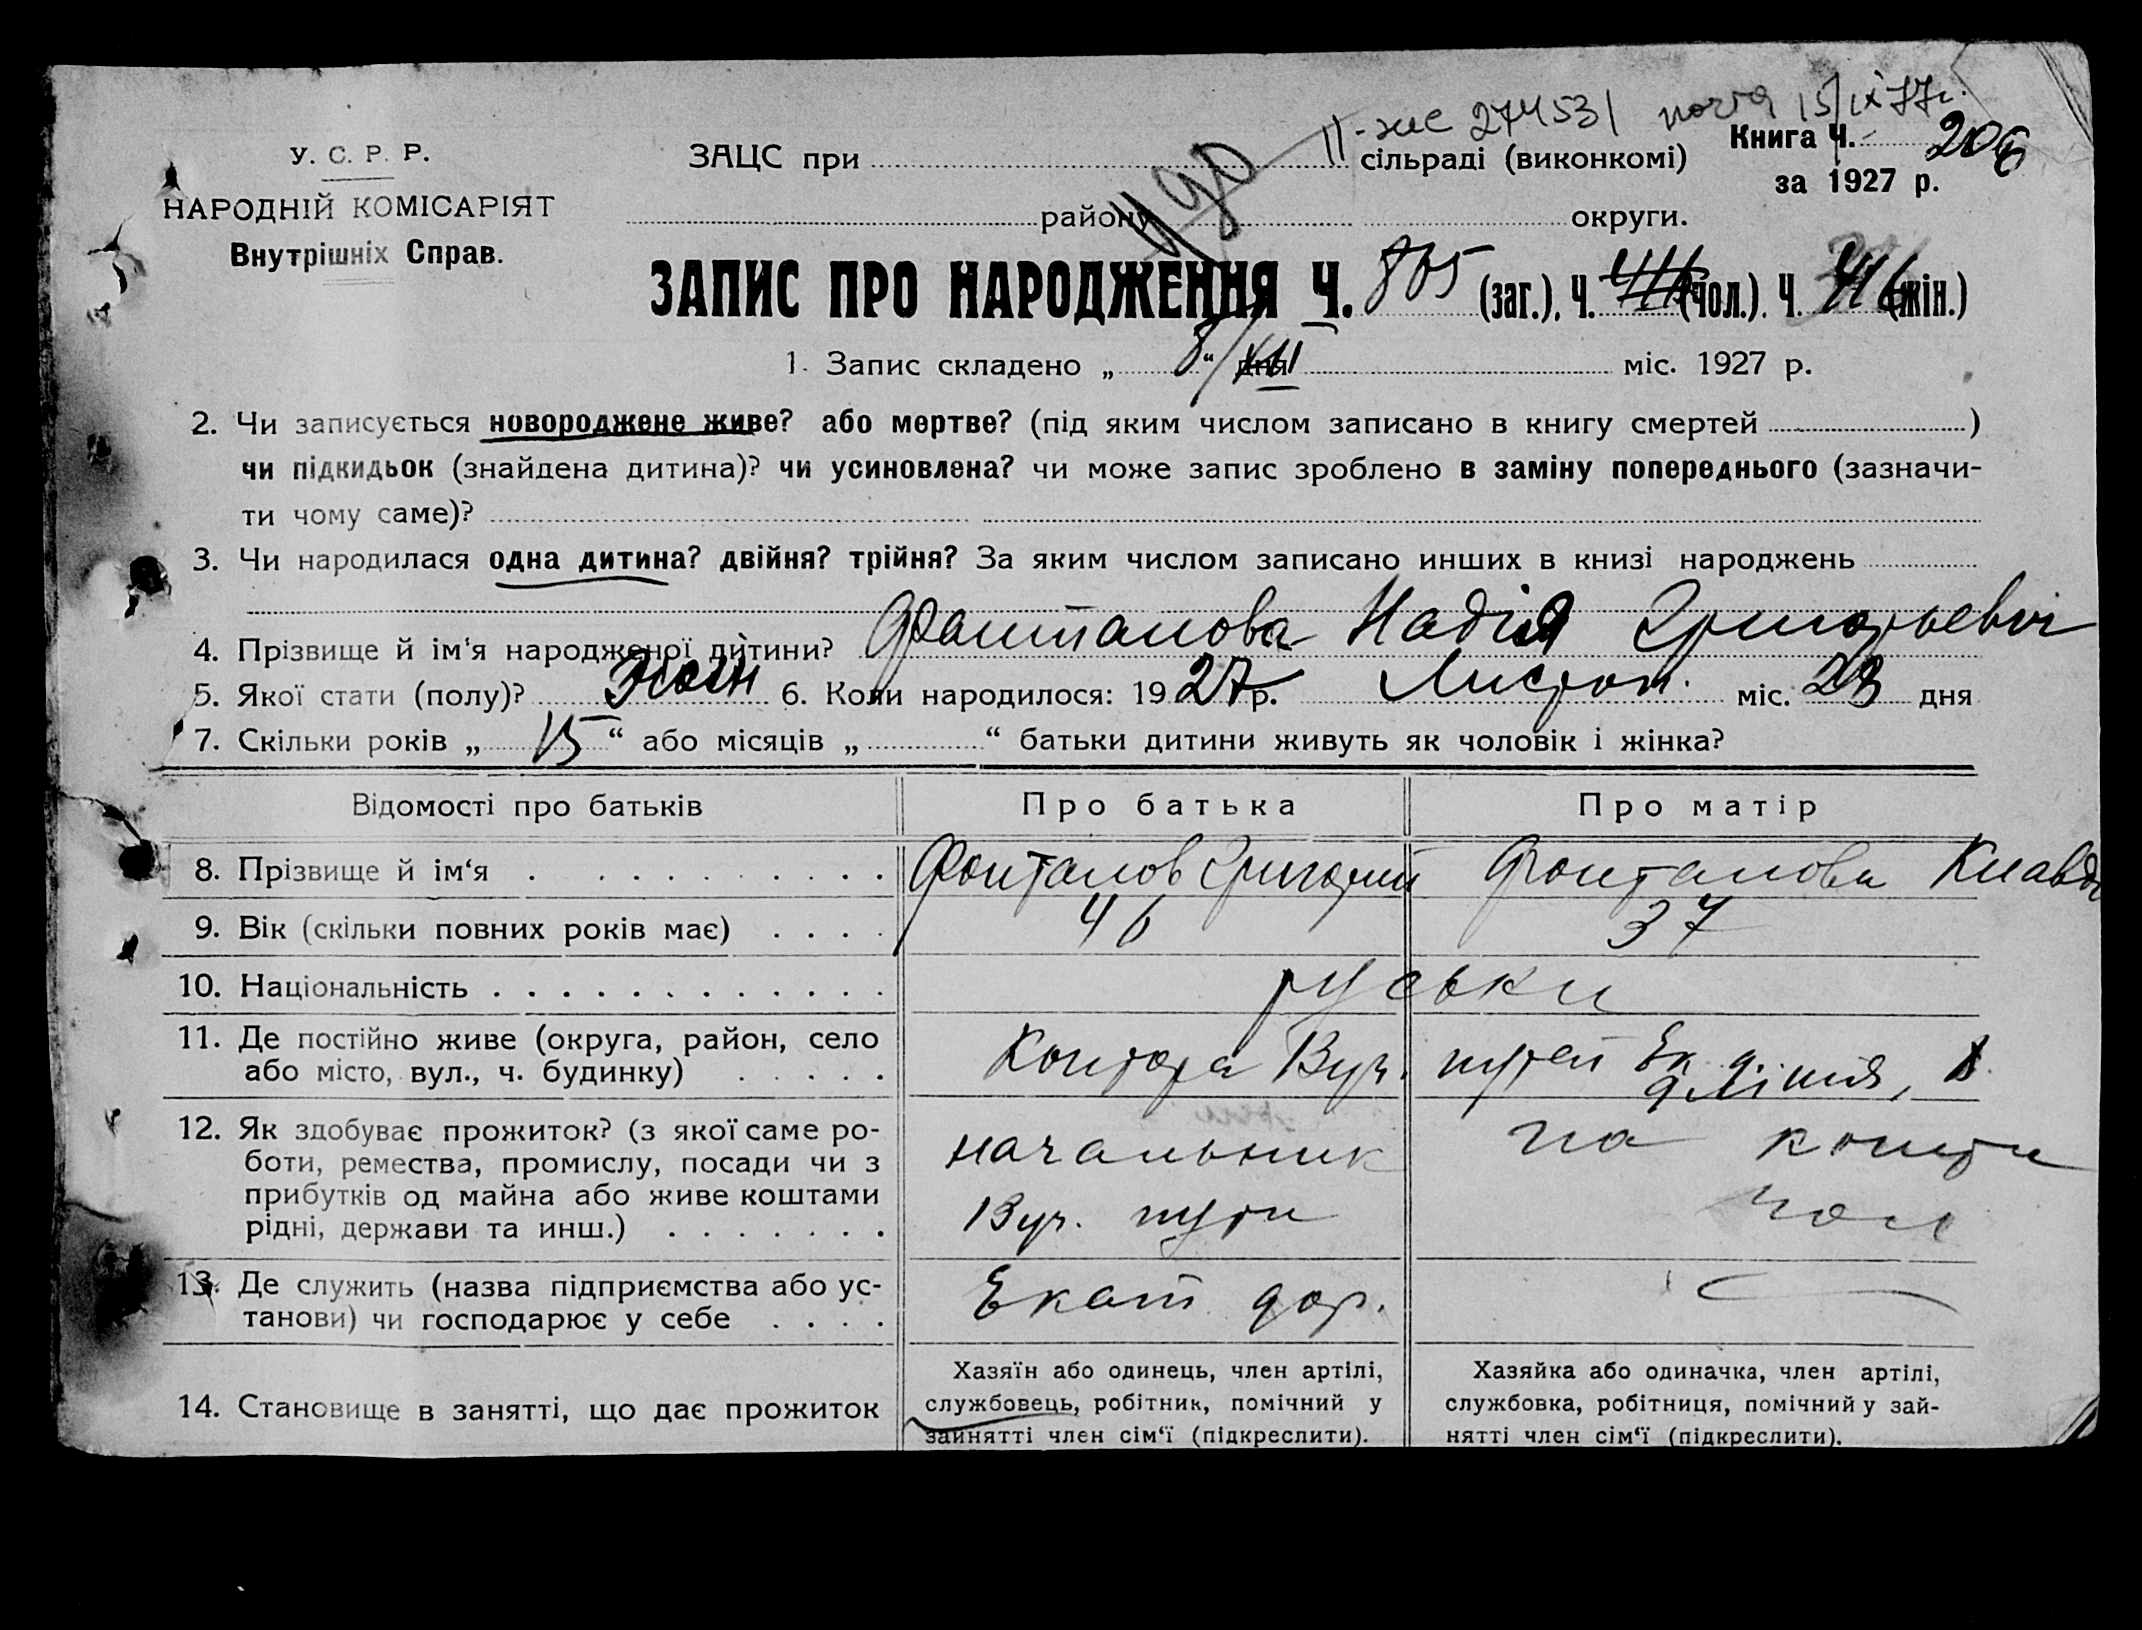 II-же 274531 почта 15/IX 77г.
У. С. Р. Р.
НАРОДНІЙ КОМІСАРІЯТ
Внутрішніх Справ.
ЗАЦС при сільраді (виконкомі)
району округи.
Книга Ч. 206
за 1927 р.
ЗАПИС ПРО НАРОДЖЕННЯ Ч. 805 (заг.), Ч. (чол.). Ч. 416 (жін.)
1. Запис складено „ 8/XII “ дня міс. 1927 р.
2. Чи записується новороджене живе? або мертве? (під яким числом записано в книгу смертей )
чи підкидьок (знайдена дитина)? чи усиновлена? чи може запис зроблено в заміну попереднього (зазначи-
ти чому саме)?
3. Чи народилася одна дитина? двійня? трійня? За яким числом записано инших в книзі народжень
4. Прізвище й ім‘я народженої дитини? Фонтанова Надія Григорьевн
5. Якої стати (полу)? жін 6. Коли народилося: 1927 р. Листоп. міс. 23 дня
7. Скільки років „ 15 “ або місяців „ “ батьки дитини живуть як чоловік і жінка?
Відомості про батьків Про батька Про матір
8. Прізвище й ім‘я Фонтанов Григорий Фонтанова Клавд
9. Вік (скільки повних років має) 46 37
10. Національність руськи
11. Де постійно живе (округа, район, село
або місто, вул., ч. будинку)
Контора Вуч. путей Ек.
12. Як здобуває прожиток? (з якої саме ро-
боти, ремества, промислу, посади чи з
прибутків од майна або живе коштами
рідні, держави та инш.)
начальник
Вуч. пути
на кошти
чол
13. Де служить (назва підприємства або ус-
танови) чи господарює у себе
Екат дор.
14. Становище в занятті, що дає прожиток
Хазяїн або одинець, член артілі,
службовець, робітник, помічний у
зайнятті член сім‘ї (підкреслити).
Хазяйка або одиначка, член артілі,
службовка, робітниця, помічний у зай-
нятті член сім‘ї (підкреслити).